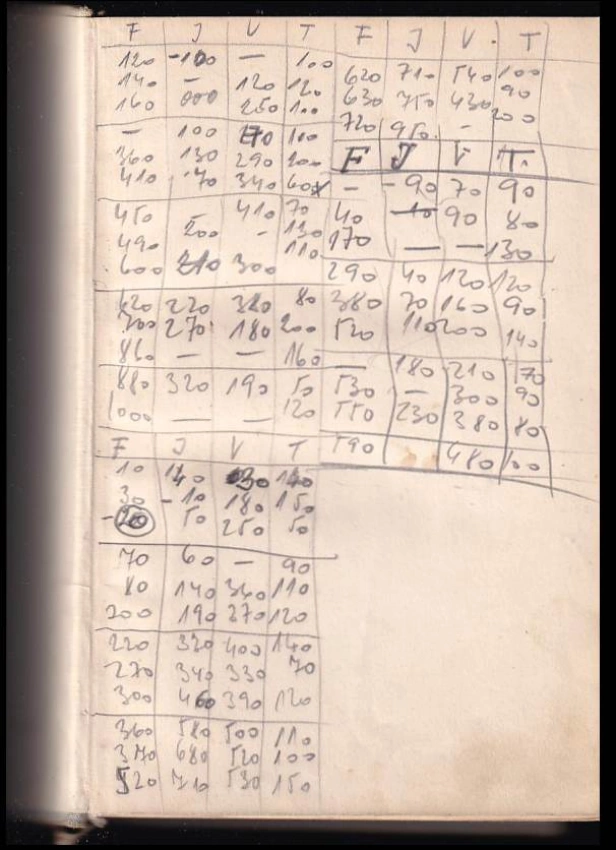 F J V T
120 -100 — 100
140 — 120 120
160 000 250 100
— 100 170 100
360 130 290 200
410 -70 340 60
450 — 410 70
490 200 - 130
600 210 300 110
620 220 320 80
700 270 180 200
860 — — 160
880 320 190 50
1000 — — 120
F J V T
10 140 130 170
30 -10 180 150
-200 50 250 50
70 60 — 90
80 140 360 110
200 190 270 120
220 320 400 140
270 340 330 70
300 460 390 120
360 580 500 110
370 680 520 100
520 710 530 150
F J V. T
620 710 540 100
630 750 430 90
720 950. - 200
F J V T.
— -90 70 90
40 -10 90 80
170 — — 130
290 40 120 120
380 70 160 90
520 110 200 140
— 180 210 170
530 — 300 90
550 230 380 80
590 480 100